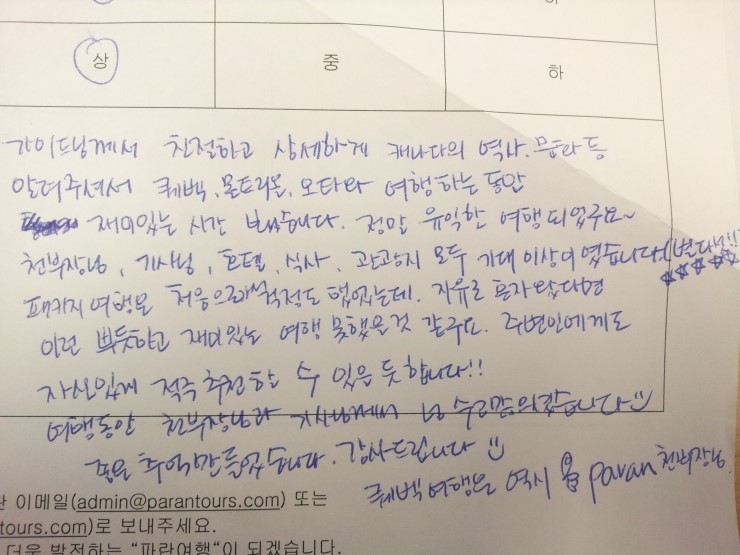 상 중 하
가이드님께서 친절하고 상세하게 캐나다의 역사. 문화 등
알려주셔서 퀘벡, 몬트리올, 오타와 여행하는 동안
재미있는 시간 보냈습니다. 정말 유익한 여행 되었구요~
천부장님, 기사님, 호텔, 식사, 관광지 모두 기대 이상이였습니다 (별다섯!! ☆☆☆☆☆
패키지 여행은 처음으로 걱정도 했었는데. 자유로 혼자 왔다면
이런 뿌듯하고 재미있는 여행 못했을것 같구요. 주변인에게도
자신있게 적극 추천할 수 있을 듯 합니다!!
여행동안 천부장님과 기사님께서 넘 수고많으셨습니다
좋은 추억 만들었습니다. 감사드립니다
퀘벡여행은 역시 paran 천부장님.
이메일(admin@parantours.com) 또는
tours.com)로 보내주세요.
더욱 발전하는 "파란여행"이 되겠습니다.